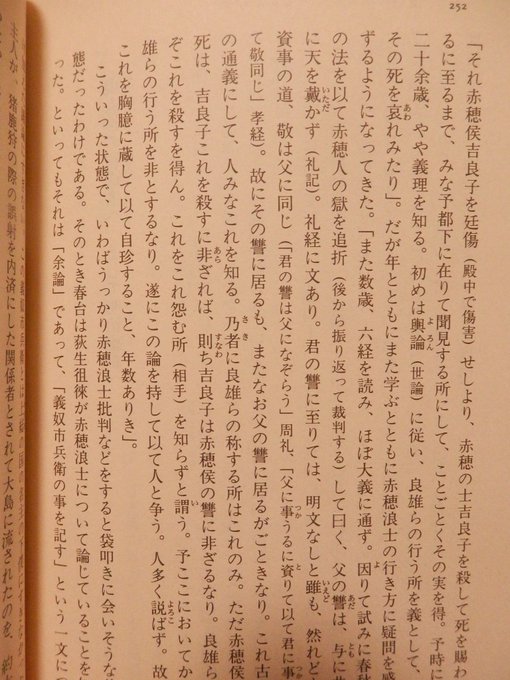 252
「それ赤穂侯吉良子を廷傷（殿中で傷害）せしより、赤穂の士吉良子を殺して死を賜わ
るに至るまで、みな予都下に在りて聞見する所にして、ことごとくその実を得。予時に
二十余歳、やや義理を知る。初めは輿論（世論）に従い、良雄らの行う所を義として、
その死を哀れみたり」。だが年とともにまた学ぶとともに赤穂浪士の行き方に疑問を感
ずるようになってきた。「また数歳、六経を読み、ほぼ大義に通ず。因りて試みに春秋
の法を以て赤穂人の獄を追折（後から振り返って裁判する）して曰く、父の讐は、与に共
に天を戴かず（礼記）。礼経に文あり。君の讐に至りては、明文なしと雖も、然れど
資事の道、敬は父に同じ（「君の讐は父になぞらう」周礼、「父に事うるに資りて以て君に事
て敬同じ」孝経）。故にその讐に居るも、またなお父の讐に居るがごときなり。これ古
の通義にして、人みなこれを知る。乃者に良雄らの称する所はこれのみ。ただ赤穂侯
死は、吉良子これを殺すに非ざれば、則ち吉良子は赤穂侯の讐に非ざるなり。良雄ら
ぞこれを殺すを得ん。これをこれ怨む所（相手）を知らずと謂う。予ここにおいてか
雄らの行う所を非とするなり。遂にこの論を持して以て人と争う。人多く説ばず。故
これを胸臆に蔵して以て自珍すること、年数ありき」。
こういった状態で、いわばうっかり赤穂浪士批判などをすると袋叩きに会いそうな
態だったわけである。そのとき春台は荻生徂徠が赤穂浪士について論じていることを
った。といってもそれは「余論」であって、「義奴市兵衛の事を記す」という一文につ
主人が、猪鹿狩の際の誤射を内済にした関係者とされて大島に流されたのを、